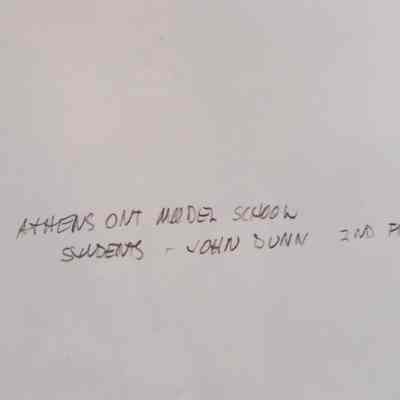 ATHENS ONT MODEL SCHOOL
STUDENTS - JOHN DUNN 2ND